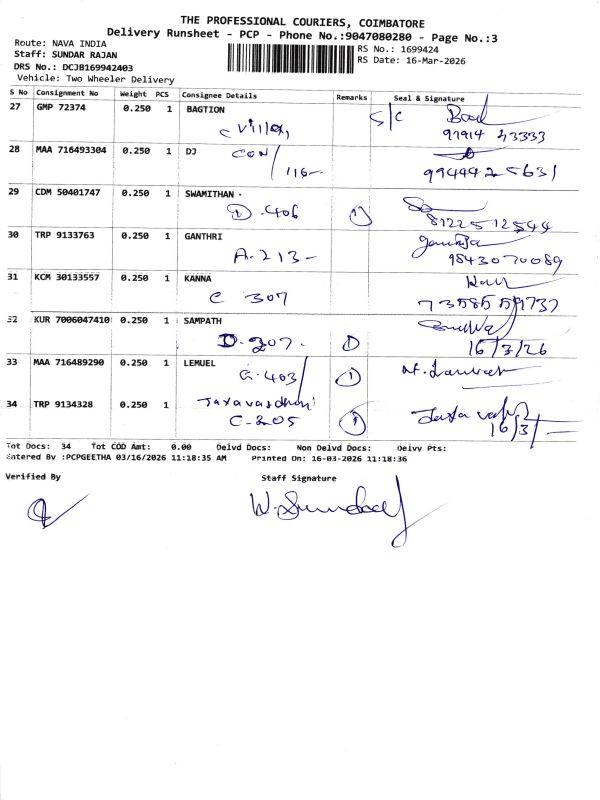 THE PROFESSIONAL COURIERS, COIMBATORE
Delivery Runsheet - PCP - Phone No.:9047080280 - Page No.:3
Route: NAVA INDIA
Staff: SUNDAR RAJAN
DRS No.: DCJB169942403
Vehicle: Two Wheeler Delivery
RS No.: 1699424
RS Date: 16-Mar-2026
S No Consignment No Weight PCS Consignee Details Remarks Seal & Signature
27 GMP 72374 0.250 1 BAGTION S/C
C Villa, 97914 43333
28 MAA 716493304 0.250 1 DJ
CON/116- 99444 25631
29 CDM 50401747 0.250 1 SWAMITHAN
D.406 1 8122512544
30 TRP 9133763 0.250 1 GANTHRI
A.213- 9843070089
31 KCM 30133557 0.250 1 KANNA
C 307 7358559737
32 KUR 7006047410 0.250 1 SAMPATH
D-207. 1 16/3/26
33 MAA 716489290 0.250 1 LEMUEL
G-403/ 1
34 TRP 9134328 0.250 1
C-205 1 16/3/
Tot Docs: 34 Tot COD Amt: 0.00 Delvd Docs: Non Delvd Docs: Delvy Pts:
Entered By :PCPGEETHA 03/16/2026 11:18:35 AM Printed On: 16-03-2026 11:18:36
Verified By Staff Signature